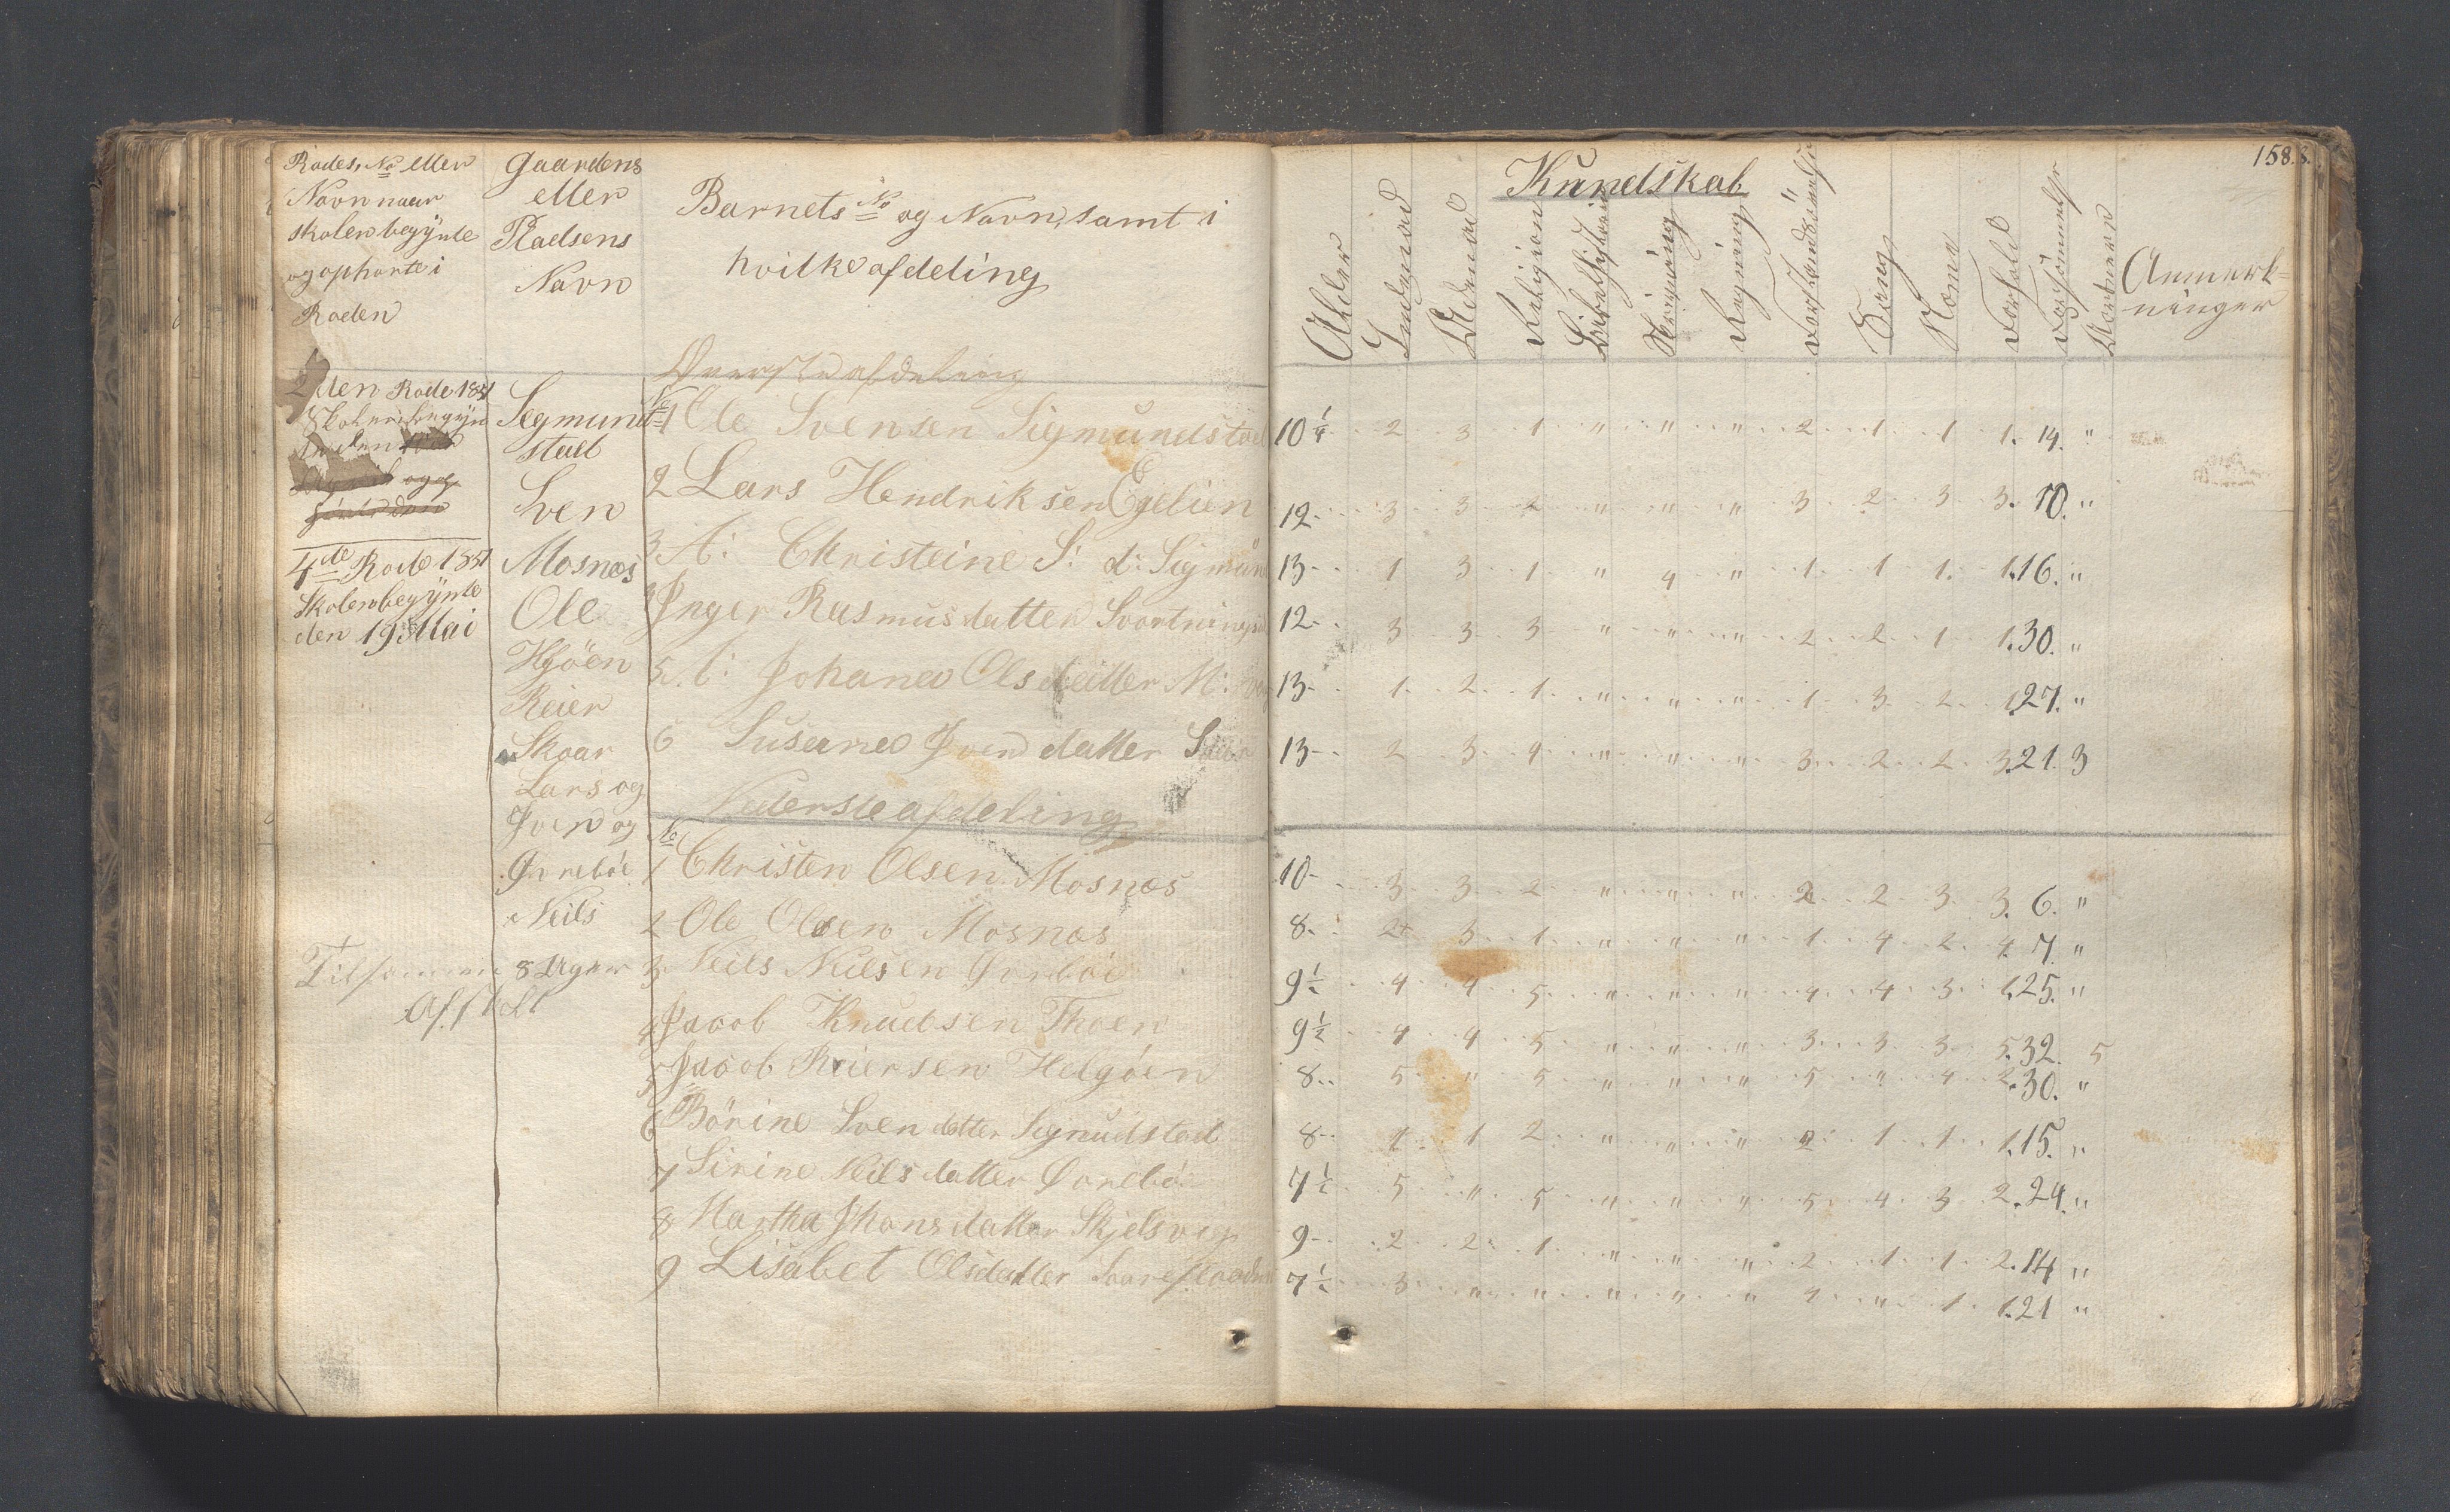 Rodes, No eller
Navn naar
skolen begynte
og ophørte i
Roden
Gaardens
eller
Pladsens
Navn
Barnets No og Navn, samt i
hvilke afdeling
Øverste afdeling
den Rode 1851
4de Rode 1851
Skolen begynte
den 19 Mai
Segmund
stad
Sven
Mosnøs
Ole
Reier
Skoar
Lars og
Iven og
Øvrebøe
Neils
Tilsammen 8 Uger
No 1 Ole Svensen Sigmundstad
2 Lars Hendriksen Egelien
3 A: Christeine S: d: Sigmun
4 Inger Rasmusdatter
5 Johane Olsdatter M:
6 Susane Iven datter
Nederste afdeling
No
1 Christen Olsen Mosnøs
2 Ole Olsen Mosnøs
3 Neils Neilsen Øvrebøe
4 Jacob Knudsen Thoen
5 Jacob Reiersen Helgøen
6 Börine Sven datter Sigmudstad
7 Sirine Neils datter Øvrebø
8 Martha Jhons datter Skjelsvig
9 Lisabet Olsdatter
158.
Kundskab
Alder
Indenad
Udenad
Religion
Bibelhistorie
Skrivning
Regning
Forstandsövelse
Sang
Evne
Forhold
Forsömmelse
Anmerk=
ninger
10 1/4 2 3 1 " " " 2 1 1 1. 14. "
12 3 3 2 " " " 3 2 3 3. 10. "
13 1 3 1 " 4 " 1 1 1. 1.16. "
12 3 3 3 " " " 2 2 1 1.30. "
13 1 2 1 " " " 1 3 2 1.27. "
13 2 3 4 " " " 3 2 2 3.21. 3
10 3 3 2 " " " 2 2 3 3. 6. "
8 2 3 1 " " " 1 4 2 4. 7. "
9 1/2 4 4 5 " " " 4 4 3 1.25. "
9 1/2 4 4 5 " " " 3 3 3 5.32. 5
8 5 " 5 " " " 5 " 4 2.30. "
8 1 1 2 " " " 2 1 1 1.15. "
7 1/2 5 " 5 " " " 5 4 3 2.24. "
9 2 2 1 " " " 2 1 1 2.14 "
7 1/2 3 " " " " " 1 " 1 1.21 "